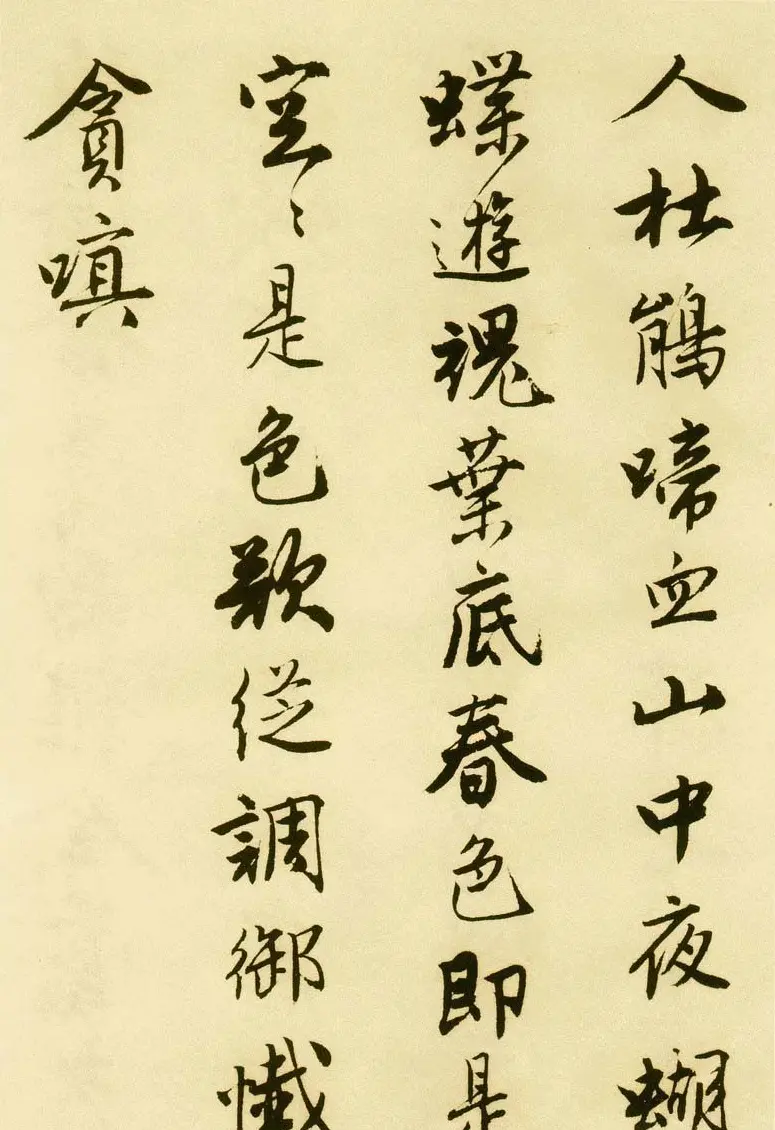 人杜鵑啼血山中夜蝴
蝶遊魂葉底春色即是
空〻是色款從調御懺
貪嗔